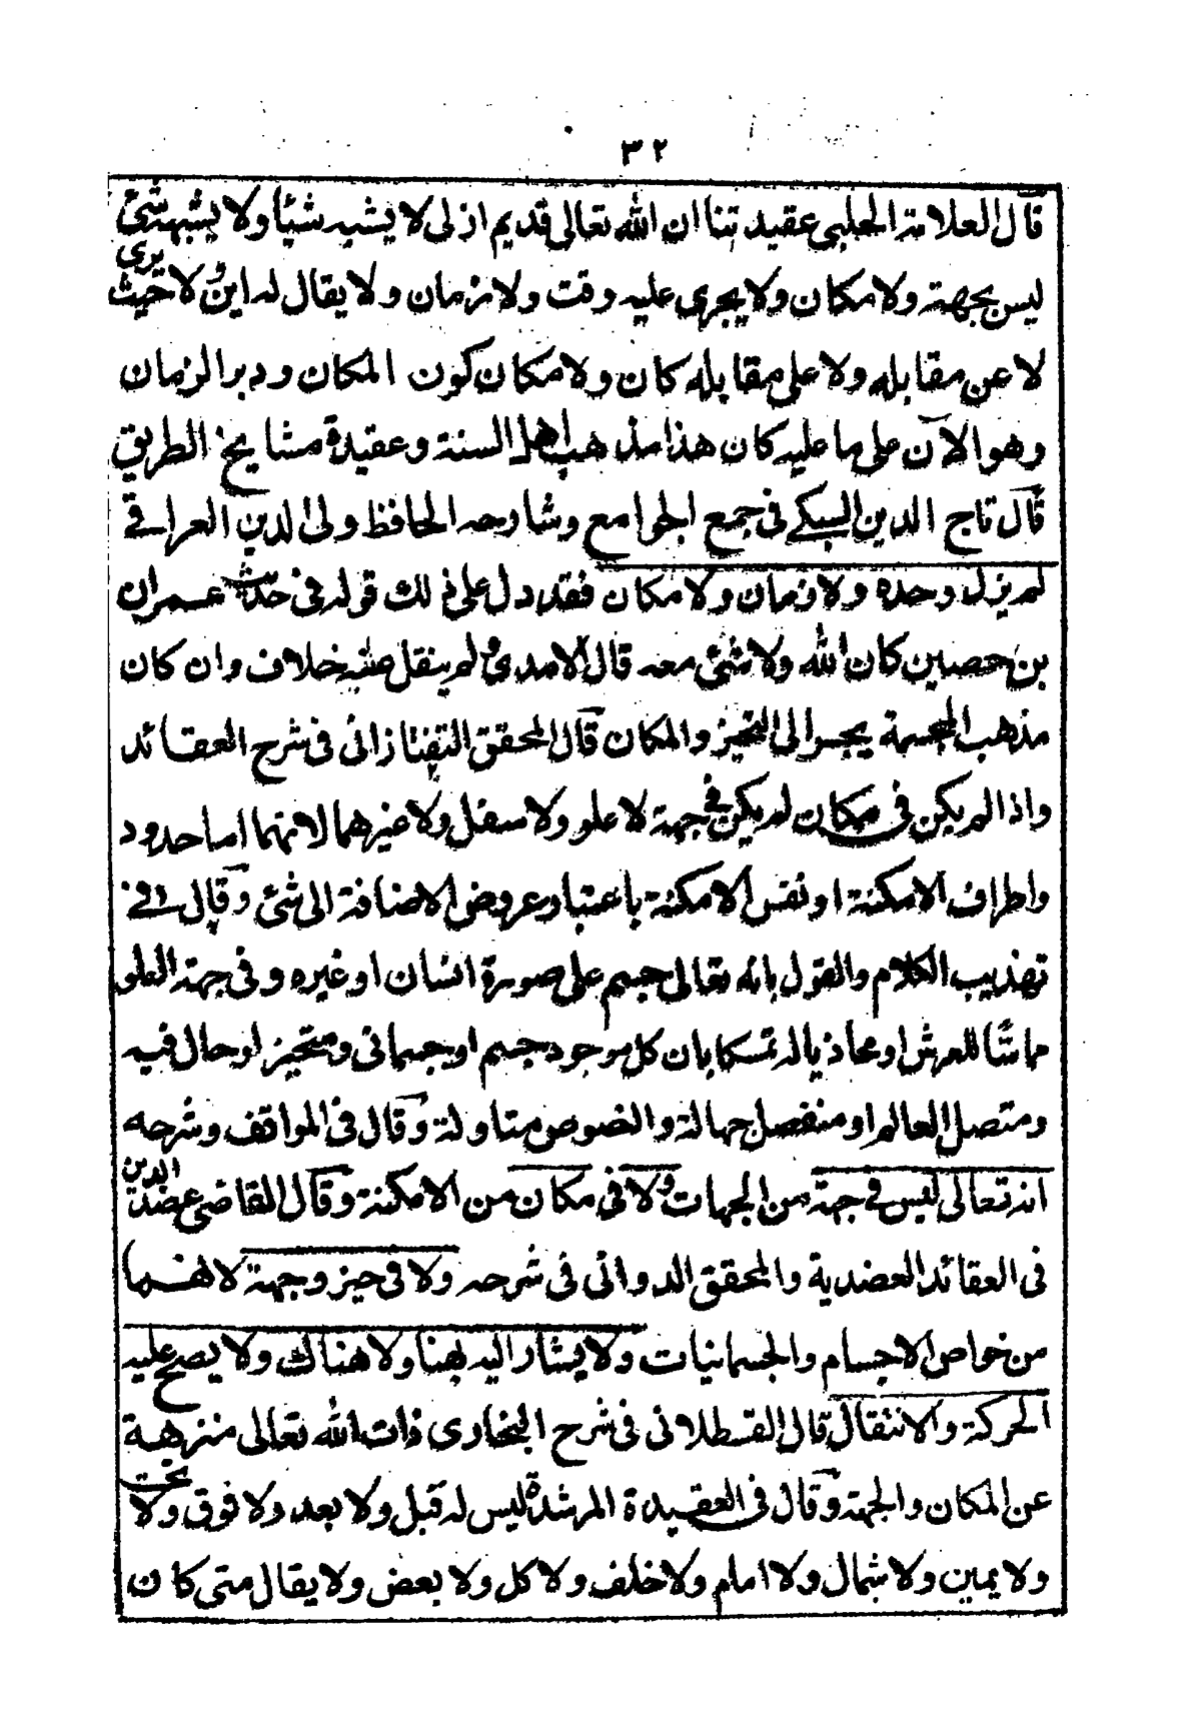 ٣٢
قال العلامة الحلبي عقيدتنا ان الله تعالى قديم ازلى لا يشبه شيئا ولا يشبهه شئ
ليس بجهة ولا مكان ولا يجرى عليه وقت ولا زمان ولا يقال له اين ولا حيث يرى
لا عن مقابله ولا على مقابله كان ولا مكان كون المكان ودبر الزمان
وهو الآن على ما عليه كان هذا مذهب اهل السنة وعقيدة مشايخ الطريق
قال تاج الدين السبكى فى جمع الجوامع وشارحه الحافظ ولى الدين العراقى
لم يزل وحده ولا زمان ولا مكان فقد دل على ذلك قوله فى حديث عمران
بن حصين كان الله ولا شئ معه قال الامدى ولم ينقل عنه خلاف وان كان
مذهب المجسمة يجر الى التحيز والمكان قال المحقق التفتازانى فى شرح العقائد
واذا لم يكن فى مكان لم يكن فى جهة لا علو ولا سفل ولا غيرهما لانها اما حدود
واطراف الامكنة او نفس الامكنة باعتبار عروض الاضافة الى شئ وقال فى
تهذيب الكلام والقول بانه تعالى جسم على صورة انسان او غيره وفى جهة العلو
مماسًّا للعرش او محاذيا له تمسكا بان كل موجود جسم او جسمانى ومتحيز او حال فيه
ومتصل العالم او منفصل جهالة والنصوص متاولة وقال فى المواقف وشرحه
انه تعالى ليس فى جهة من الجهات ولا فى مكان من الامكنة وقال القاضى عضد الدين
فى العقائد العضدية والمحقق الدوانى فى شرحه ولا فى حيز وجهة لانهما
من خواص الاجسام والجسمانيات ولا يشار اليه بهنا ولا هناك ولا يصح عليه
الحركة والانتقال قال القسطلانى فى شرح البخارى ذات الله تعالى منزهة
عن المكان والجهة وقال فى العقيدة المرشدة ليس له قبل ولا بعد ولا فوق ولا تحت
ولا يمين ولا شمال ولا امام ولا خلف ولا كل ولا بعض ولا يقال متى كان